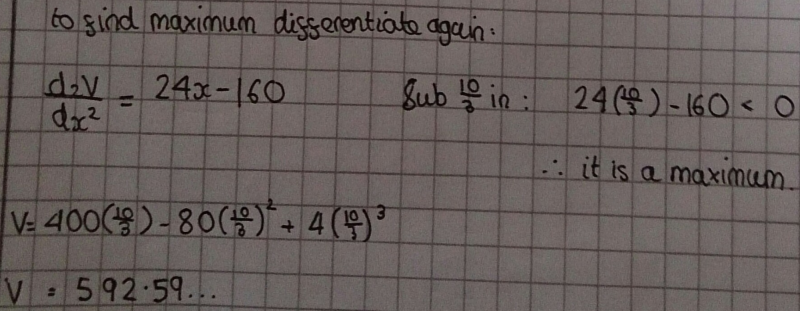 to find maximum differentiate again:
d2V/dx² = 24x - 160 Sub 10/3 in : 24(10/3) - 160 < 0
∴ it is a maximum.
V = 400(10/3) - 80(10/3)² + 4(10/3)³
V = 592.59...